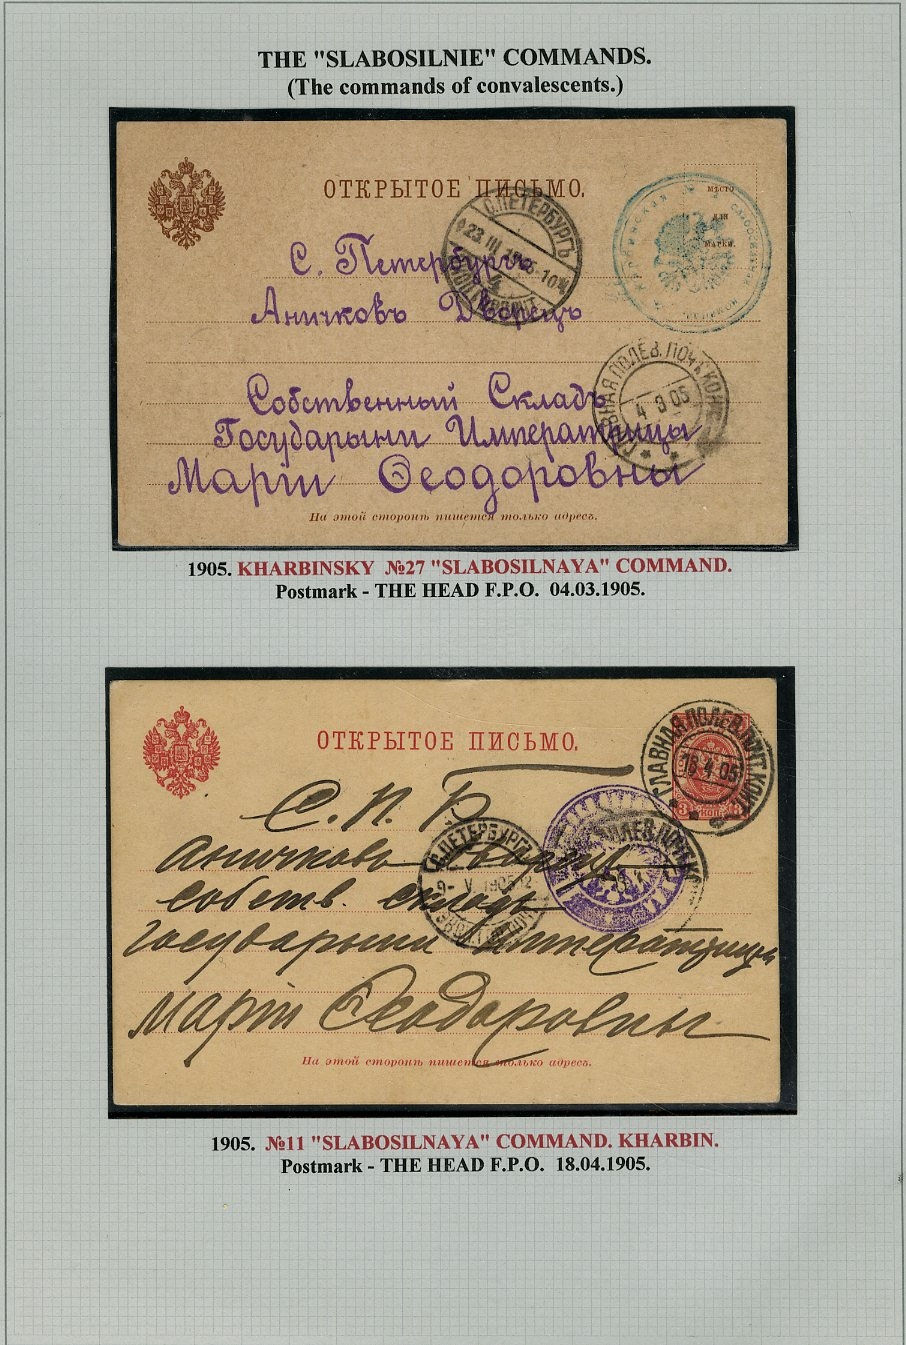 THE "SLABOSILNIE" COMMANDS.
(The commands of convalescents.)
ОТКРЫТОЕ ПИСЬМО.
МѢСТО
ДЛЯ
МАРКИ.
С.ПЕТЕРБУРГЪ
23 III 1905
С. Петербургъ
Аничковъ Дворецъ
ГЛАВНАЯ ПОЛЕВ. ПОЧТ. КОНТ
4 3 05
Собственный Складъ
Государыни Императрицы
Маріи Ѳеодоровны
На этой сторонѣ пишется только адресъ.
1905. KHARBINSKY №27 "SLABOSILNAYA" COMMAND.
Postmark - THE HEAD F.P.O. 04.03.1905.
ОТКРЫТОЕ ПИСЬМО.
ГЛАВНАЯ ПОЛЕВ. ПОЧТ. КОНТ.
18 4 05
С. П. Б
С.ПЕТЕРБУРГЪ
Аничковъ Дворецъ
собств. складъ
Государыни Императрицы
Маріи Ѳеодоровны
На этой сторонѣ пишется только адресъ.
1905. №11 "SLABOSILNAYA" COMMAND. KHARBIN.
Postmark - THE HEAD F.P.O. 18.04.1905.